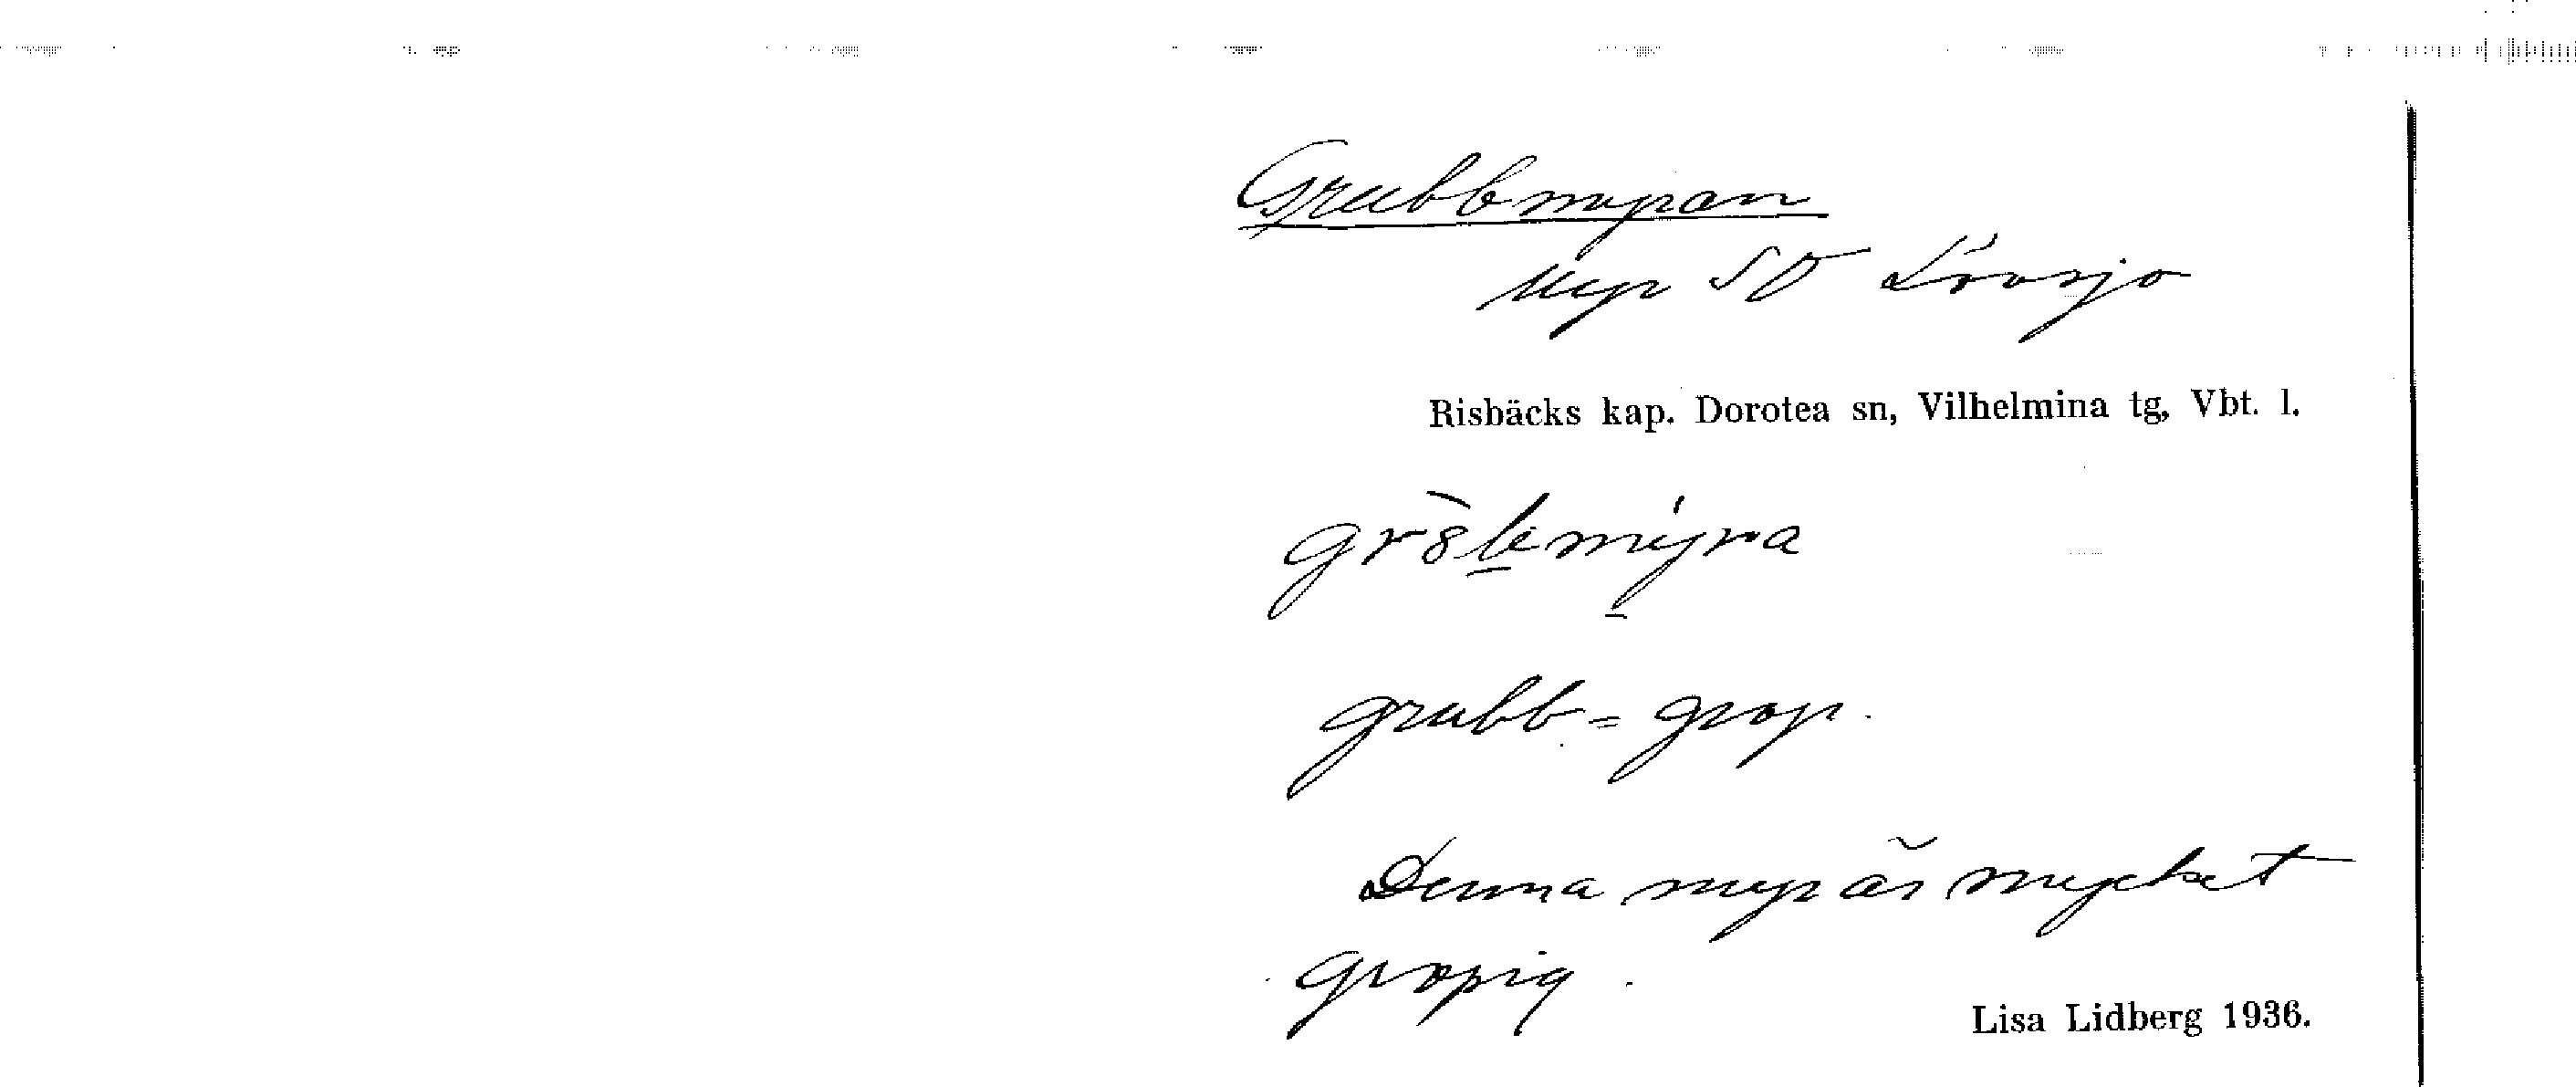 Grubbmyran
Myr SO Lövsjö
Risbäcks kap. Dorotea sn, Vilhelmina tg, Vbt. l.
grubb = grop.
Denna myr är mycket
gropig.
Lisa Lidberg 1936.